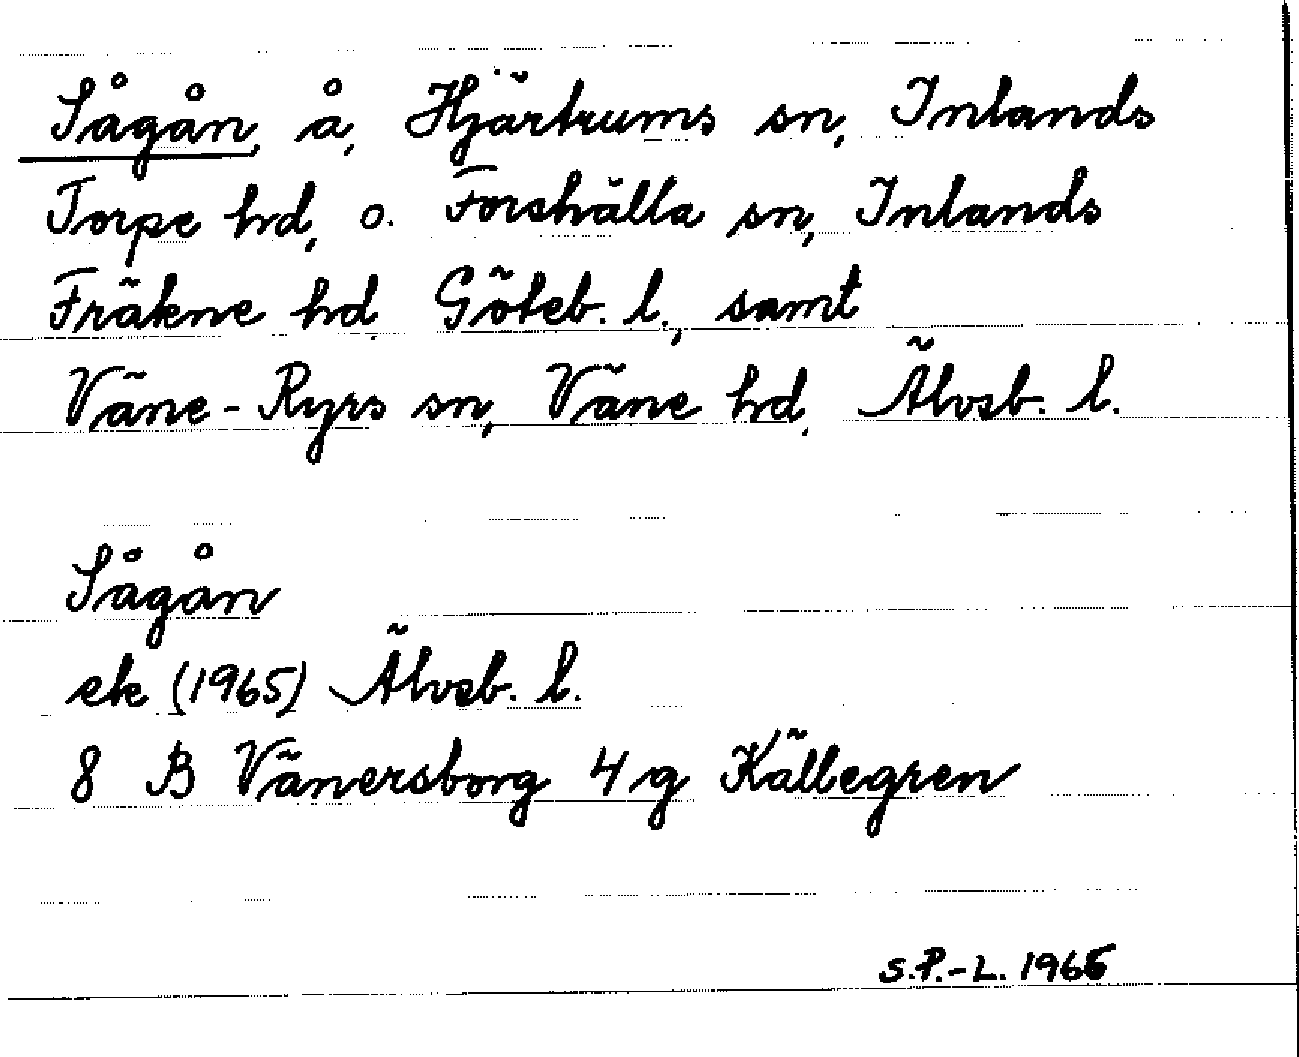 Sågån, å, Hjärtrums sn, Inlands
Torpe hd, o. Forshälla sn, Inlands
Fräkne hd Göteb. l., samt
Väne-Ryrs sn, Väne hd, Älvsb. l.
Sågån
ek (1965) Älvsb. l.
8 B Vänersborg 4 g Källegren
S.P.-L. 1966